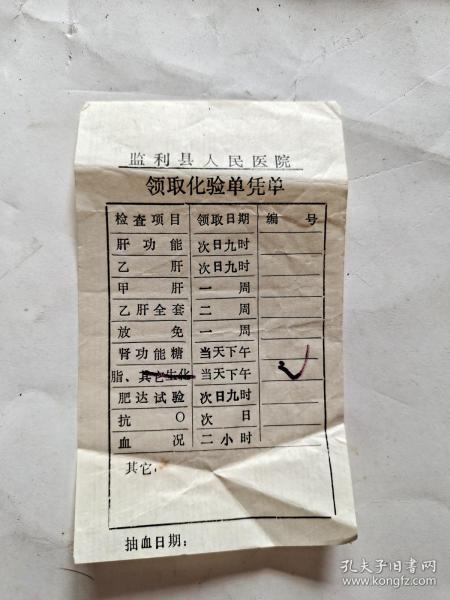 监利县人民医院
领取化验单凭单
检查项目 领取日期 编号
肝功能 次日九时
乙肝 次日九时
甲肝 一周
乙肝全套 二周
放免 一周
肾功能糖 当天下午
脂、其它生化 当天下午
肥达试验 次日九时
抗O 次日
血况 二小时
其它：
抽血日期：
孔夫子旧书网
www.kongfz.com